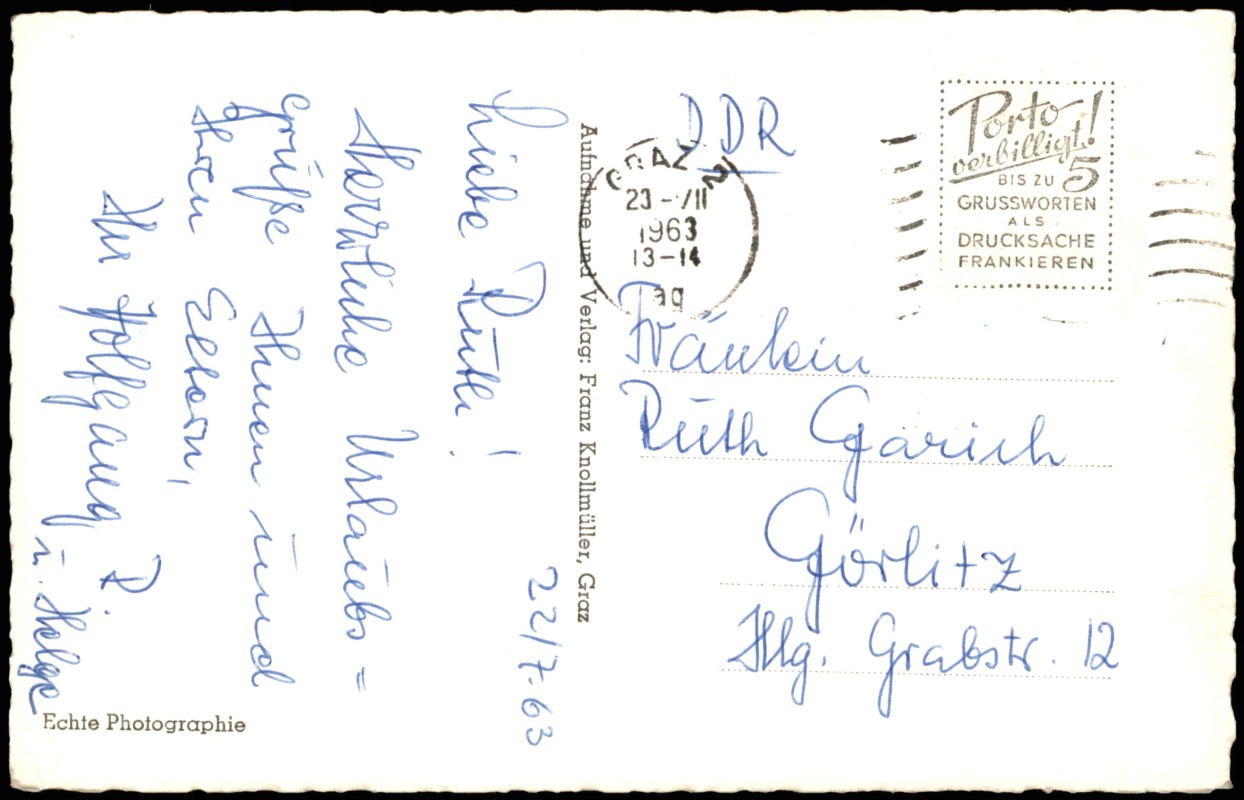 22/7.63
Liebe Ruth!
Herrliche Urlaubs=
grüße Ihnen und
Ihren Eltern,
Ihr Wolfgang R.
u. Helge
Echte Photographie
Aufnahme und Verlag: Franz Knollmüller, Graz
DDR
GRAZ 2
23-VII
1963
13-14
Porto
verbilligt!
BIS ZU 5
GRUSSWORTEN
ALS
DRUCKSACHE
FRANKIEREN
Fräulein
Ruth Garich
Görlitz
Hlg. Grabstr. 12